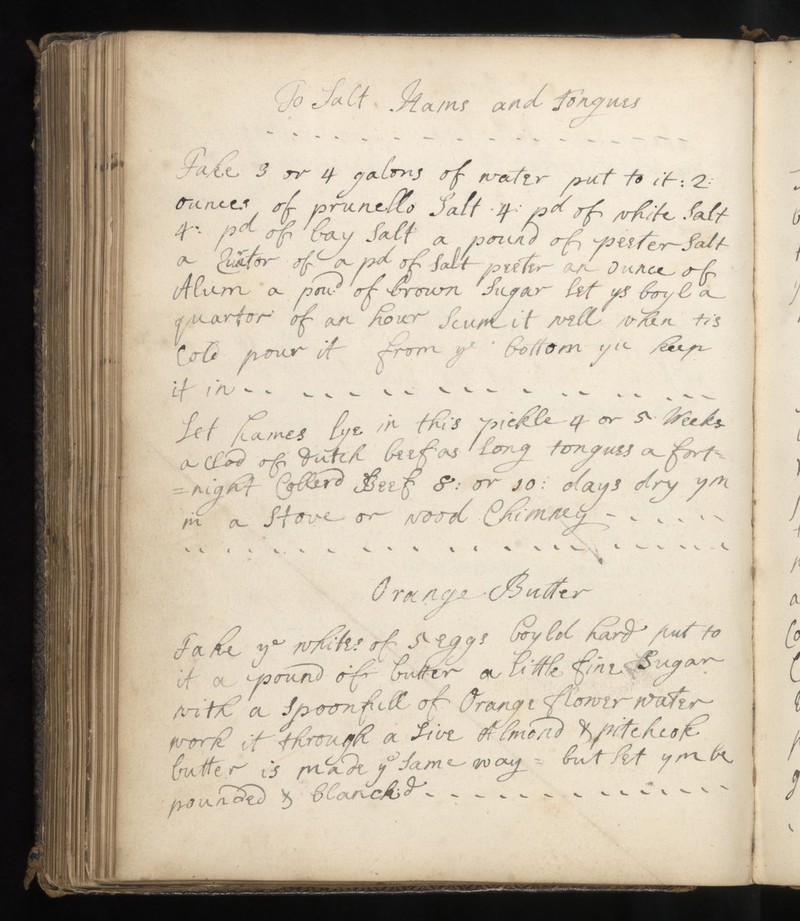 To Salt Hams and Tongues
Take 3 or 4 galons of water put to it: 2:
ounces of prunello Salt 4: pd of white Salt
4: pd of bay Salt a pound of peeter Salt
a of a pd of Salt peeter an ounce of
Alum a poud of brown Sugar let ys boyl a
quartor of an hour Scum it well when tis
Cold pour it from ye bottom yu keep
it in
Let hames lye in this pickle 4 or 5 Weeks
a Clod of Dutch beef as long tongues a fort=
=night Collerd Beef 8: or 10: days dry ym
in a Stove or wood Chimney
Orange Butter
Take ye whites of 5 eggs boyld hard put to
it a pound of butter a little fine Sugar
with a Spoonfull of Orange flower water
work it through a Sive Almond & pitcheok
butter is made ye Same way = but let ym be
pounded & blanch:d